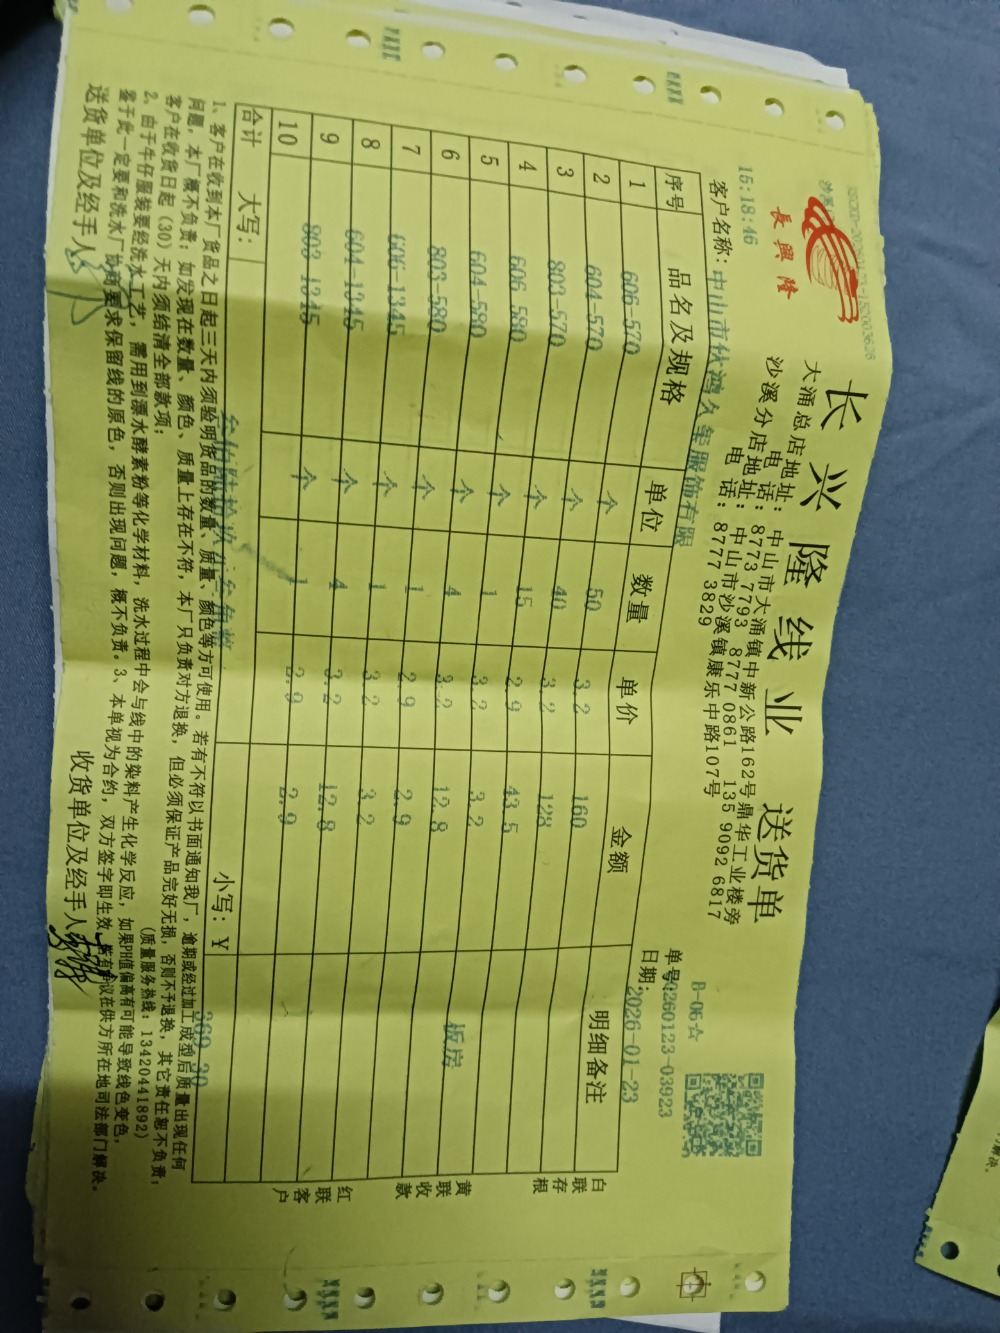 長興隆
长兴隆线业 送货单
大涌总店地址：中山市大涌镇中新公路162号鼎华工业楼旁
电话：8773 7793 8777 0861 135 9092 6817
沙溪分店地址：中山市沙溪镇康乐中路107号
电话：8777 3829
B-06☆
15:18:46
单号:20260123-03923
客户名称：中山市秋鸿久年服饰有限
日期：2026-01-23
序号 品名及规格 单位 数量 单价 金额 明细备注
1 606-570 个 50 3.2 160
2 604-570 个 40 3.2 128
3 803-570 个 15 2.9 43.5
4 606-580 个 1 3.2 3.2
5 604-580 个 4 3.2 12.8 板房
6 803-580 个 1 2.9 2.9
7 606-1345 个 1 3.2 3.2
8 604-1345 个 4 3.2 12.8
9 803-1345 个 1 2.9 2.9
10
合计 大写： 叁佰陆拾玖元叁角整 小写：￥ 369.30
1、客户在收到本厂货品之日起三天内须验明货品的数量、质量、颜色等方可使用。若有不符以书面通知我厂，逾期或经过加工成型后质量出现任何
问题，本厂概不负责；如发现在数量、颜色、质量上存在不符，本厂只负责对方退换，但必须保证产品完好无损，否则不予退换，其它责任恕不负责；
客户在收货日起（30）天内须结清全部款项；
(质量服务热线：13420441892)
2、由于牛仔服装要经洗水工艺，需用到漂水酵素粉等化学材料，洗水过程中会与线中的染料产生化学反应，如果PH值偏高有可能导致线色变色，
鉴于此一定要和洗水厂协商要求保留线的原色，否则出现问题，概不负责。3、本单视为合约，双方签字即生效，若有争议在供方所在地司法部门解决。
送货单位及经手人： 收货单位及经手人：
白联存根
黄联收款
红联客户